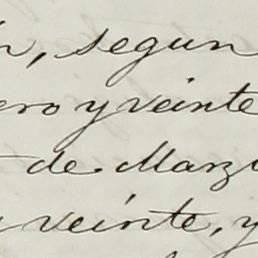 , segun
ero y veinte
de Marzo
veinte, y